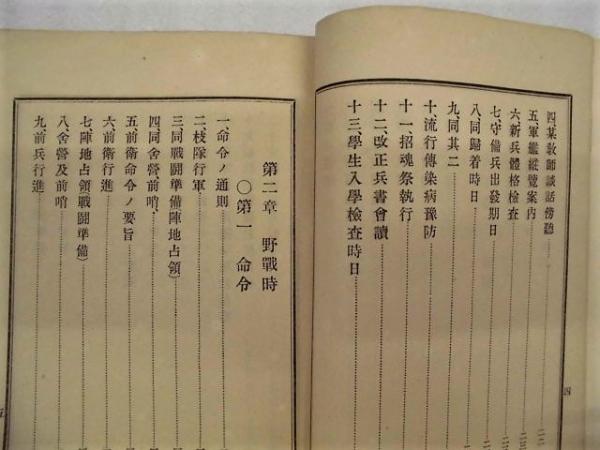 四、某敎師談話傍聽
五、軍艦縱覽案內
六、新兵體格檢查
七、守備兵出發期日
八、同歸着時日
九、同其二
十、流行傳染病豫防
十一、招魂祭執行
十二、改正兵書會讀
十三、學生入學檢查時日
四
第二章 野戰時
〇第一 命令
一、命令ノ通則
二、枝隊行軍
三、同戰鬪準備陣地占領)
四、同舍營、前哨、
五、前衛命令ノ要旨
六、前衛行進
七、陣地占領戰鬪準備)
八、舍營及前哨
九、前兵行進
五